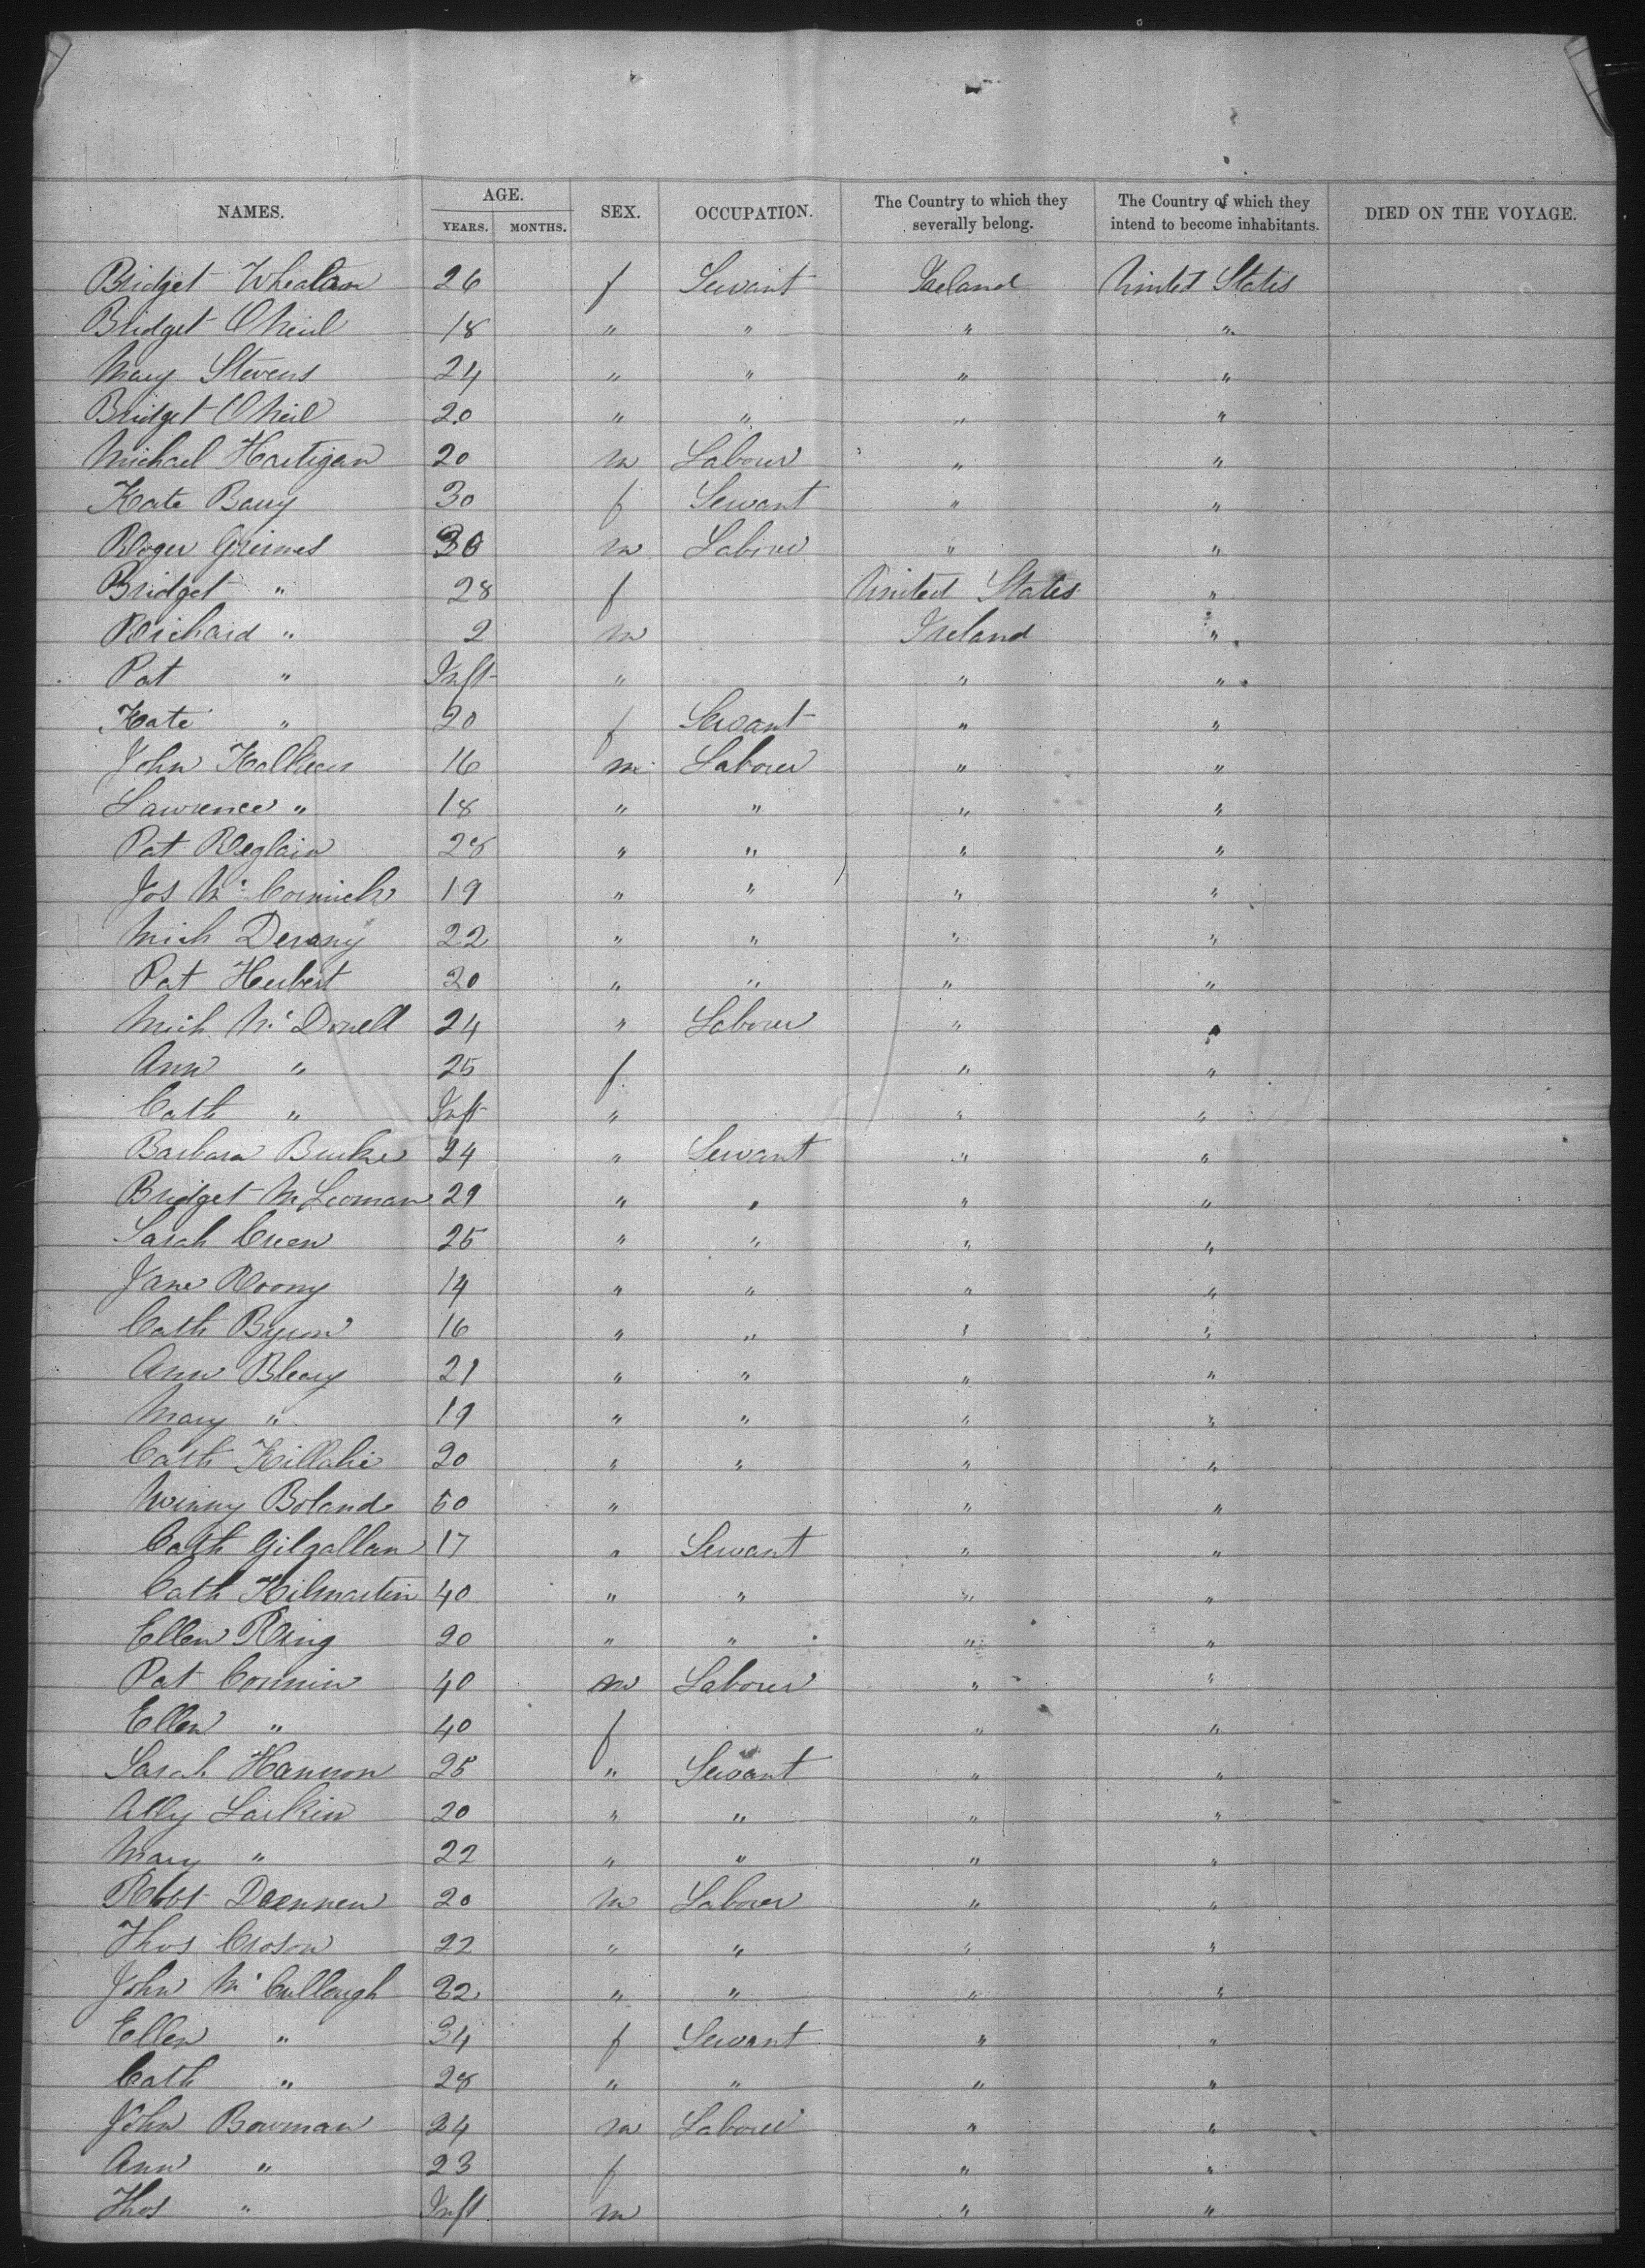 NAMES. AGE. SEX. OCCUPATION. The Country to which they severally belong. The Country of which they intend to become inhabitants. DIED ON THE VOYAGE.
YEARS. MONTHS.
Bridget Whealan 26 f Servant Ireland United States
Bridget O Neil 18 " " " "
Mary Stevens 24 " " " "
Bridget O Neil 20 " " " "
Michael Hartigan 20 m Laborer " "
Kate Barry 30 f Servant " "
Roger Grimes 30 m Laborer " "
Bridget " 28 f United States "
Richard " 2 m Ireland "
Pat " Inft " " "
Kate " 20 f Servant " "
John 16 m Laborer " "
Lawrence " 18 " " " "
Pat Reglain 28 " " " "
Jos Mc Cormick 19 " " " "
Mich Devany 22 " " " "
Pat Herbert 20 " " " "
Mich Mc Donell 24 " Laborer " "
Ann " 25 f " "
Cath " Inft " " "
Barbara Burke 24 " Servant " "
Bridget Mc Looman 29 " " " "
Sarah Creen 25 " " " "
Jane Roony 14 " " " "
Cath Byron 16 " " " "
Ann Bleary 21 " " " "
Mary " 19 " " " "
Cath Killahie 20 " " " "
Winny Boland 50 " " "
Cath Gilgallan 17 " Servant " "
Cath Kilmartin 40 " " " "
Ellen Ring 20 " " " "
Pat Cormin 40 m Laborer " "
Ellen " 40 f " "
Sarah Hannon 25 " Servant " "
Ally Larkin 20 " " " "
Mary " 22 " " " "
Robt Drennen 20 m Laborer " "
Thos Croson 22 " " " "
John Mc Cullough 32 " " " "
Ellen " 34 f Servant " "
Cath " 28 " " " "
John Bowman 24 m Laborer " "
Ann " 23 f " "
Thos " Inft m " "